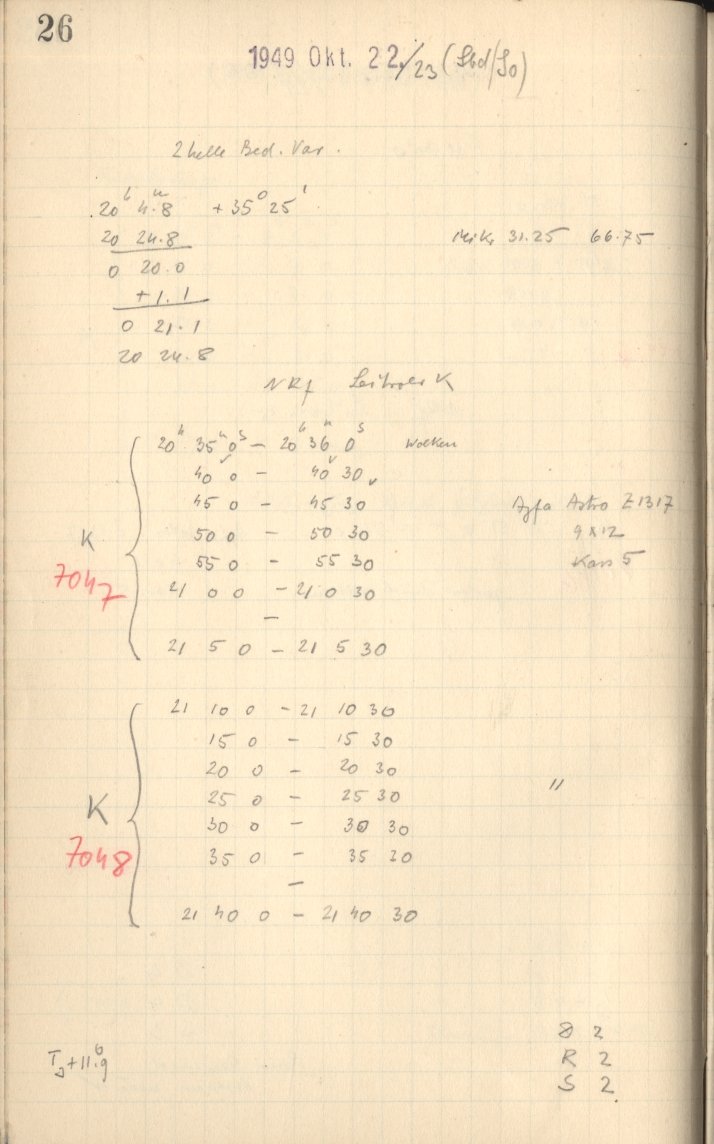 26
1949 Okt. 22./23 (Sbd/So)
2 helle Bed. Var.
20h 4m.8 + 35° 25'
20 24.8 Mikr 31.25 66.75
0 20.0
+1.1
0 21.1
20 24.8
NRf K
20h 35m 0s – 20h 36m 0s Wolken
40 0 – 40 30
45 0 – 45 30 Agfa Astro Z1317
50 0 – 50 30 9x12
K
55 0 – 55 30 Kass 5
7047
21 0 0 – 21 0 30
–
21 5 0 – 21 5 30
21 10 0 – 21 10 30
15 0 – 15 30
20 0 – 20 30
25 0 – 25 30 "
K
30 0 – 30 30
7048
35 0 – 35 30
–
21 40 0 – 21 40 30
2
R 2
S 2
+11.9